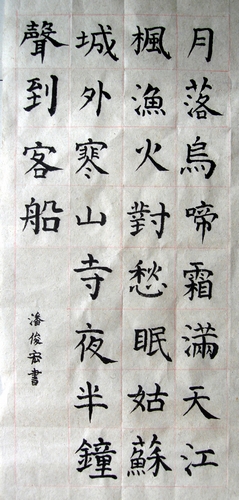 月落烏啼霜滿天江
楓漁火對愁眠姑蘇
城外寒山寺夜半鐘
聲到客船
潘俊宏書